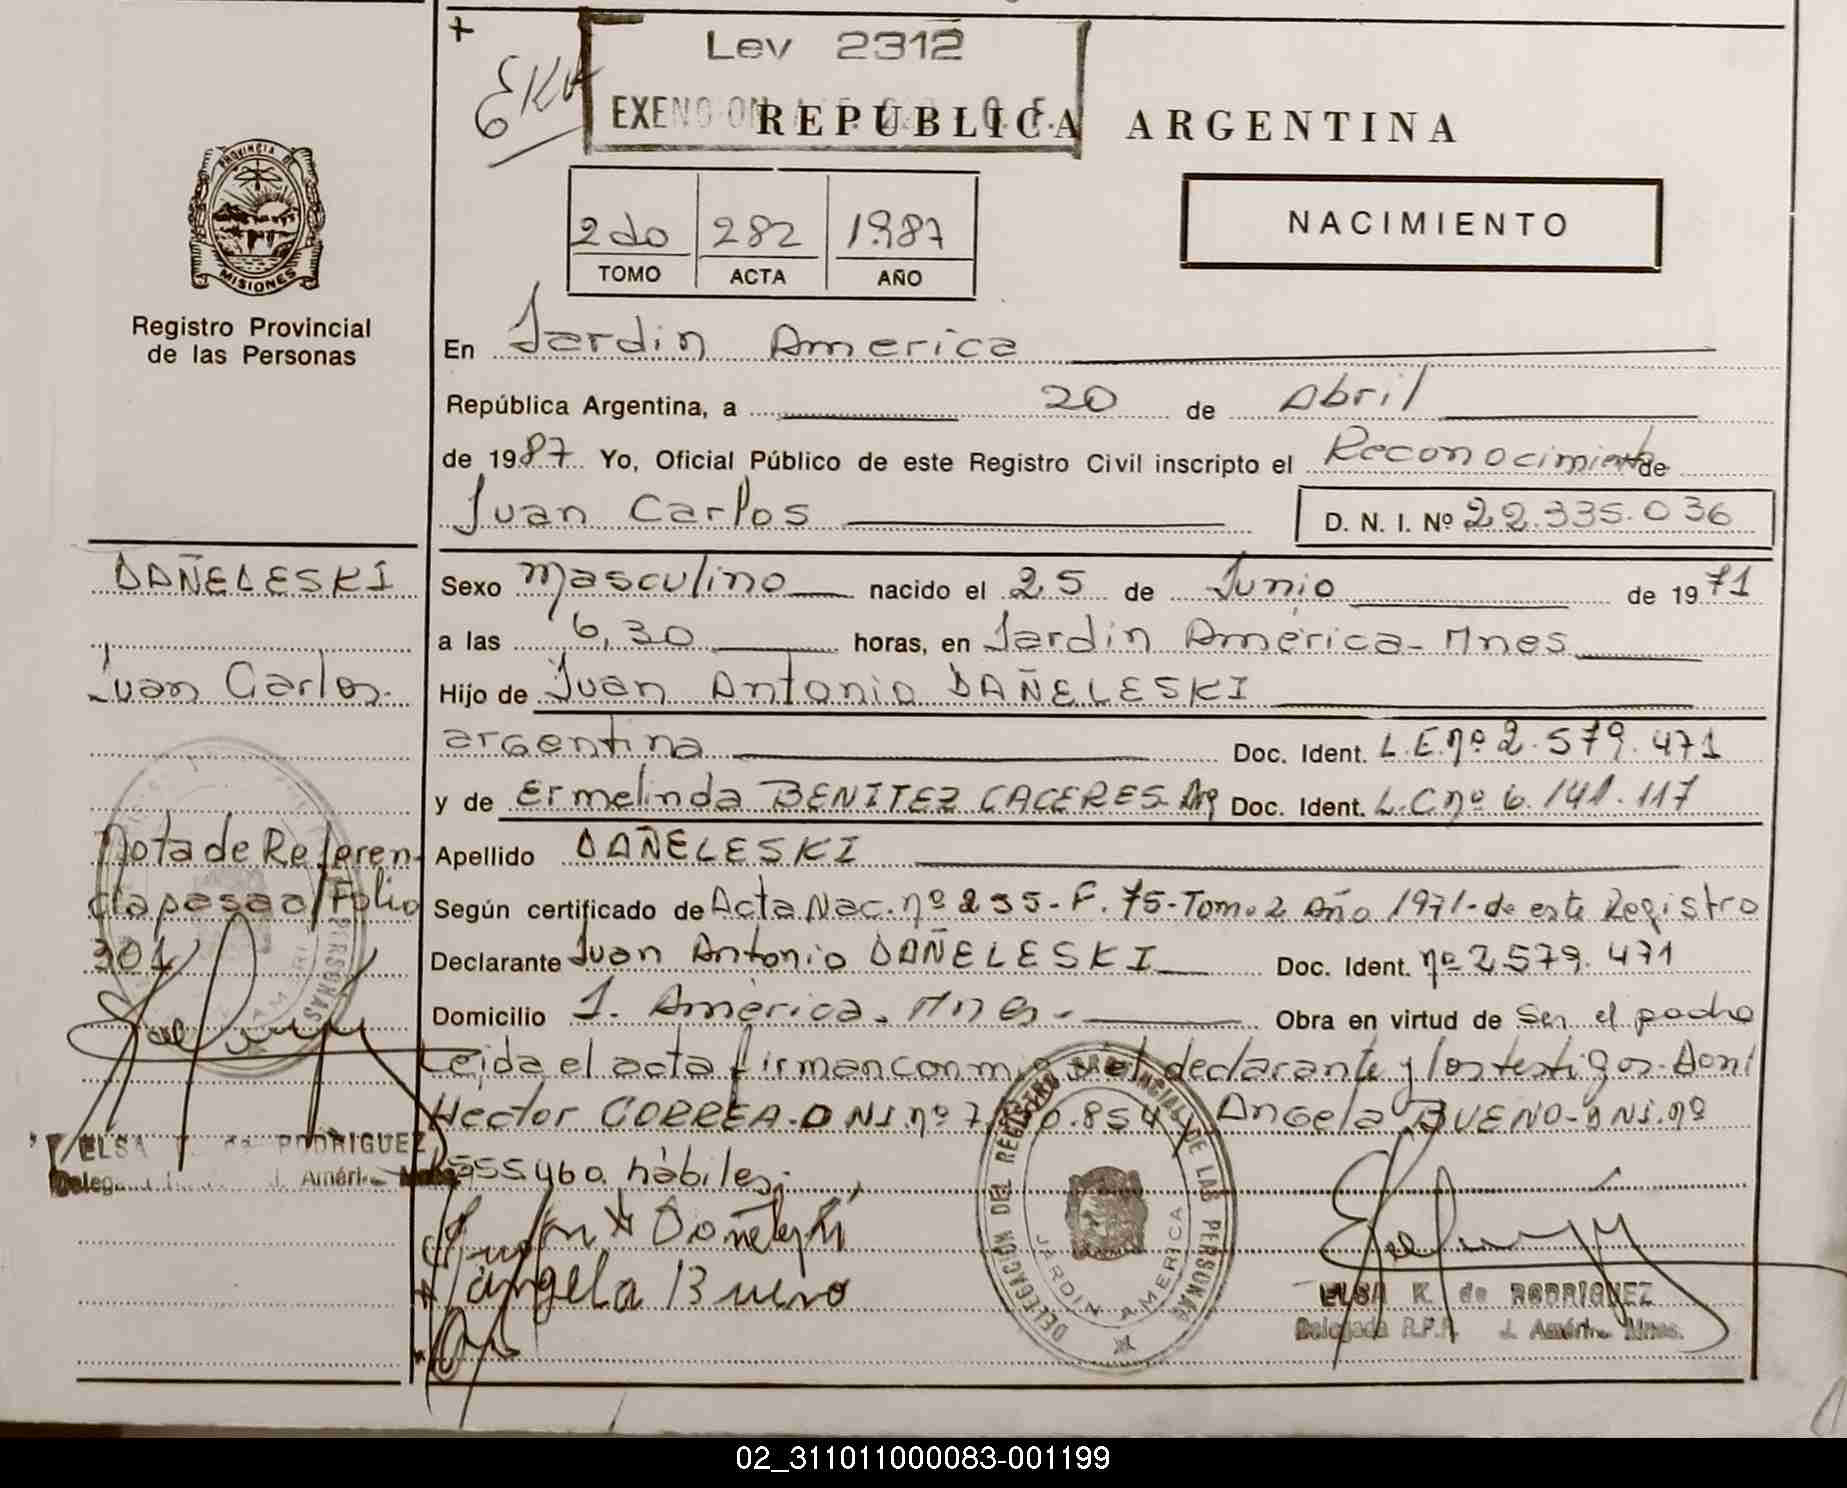 Ley 2312
EXENCION
REPUBLICA ARGENTINA
PROVINCIA DE
MISIONES
2do 282 1987
TOMO ACTA AÑO
NACIMIENTO
Registro Provincial
de las Personas
En Jardin America
República Argentina, a 20 de Abril
de 1987 Yo, Oficial Público de este Registro Civil inscripto el Reconocimiento de
Juan Carlos D. N. I. Nº 22.335.036
DAÑELESKI
Juan Carlos.
Sexo masculino nacido el 25 de Junio de 1971
a las 6,30 horas, en Jardin América - Mnes
Hijo de Juan Antonio DAÑELESKI
argentina Doc. Ident. L.E.nº 2.579.471
y de Ermelinda BENITEZ CACERES Arg Doc. Ident. L.C nº 6.141.117
Apellido DAÑELESKI
Según certificado de Acta Nac. nº 255 - F. 75 - Tomo 2 Año 1971 - de este Registro
Declarante Juan Antonio DAÑELESKI Doc. Ident. nº 2579.471
Domicilio J. América. Mnes - Obra en virtud de ser el padre
Leida el acta firman conmigo el declarante y los testigos -
Hector CORREA - D NI. nº Angela BUENO - D NI. nº
habiles.
Nota de Referen-
cia pasa a/ Folio
301
ELSA K. de RODRIGUEZ
Delegada J. América Mnes.
Angela Bueno
DELEGACION DEL REGISTRO PROVINCIAL DE LAS PERSONAS
JARDIN AMERICA
ELSA K. de RODRIGUEZ
Delegada R.P.P. J. América Mnes.
02_311011000083-001199